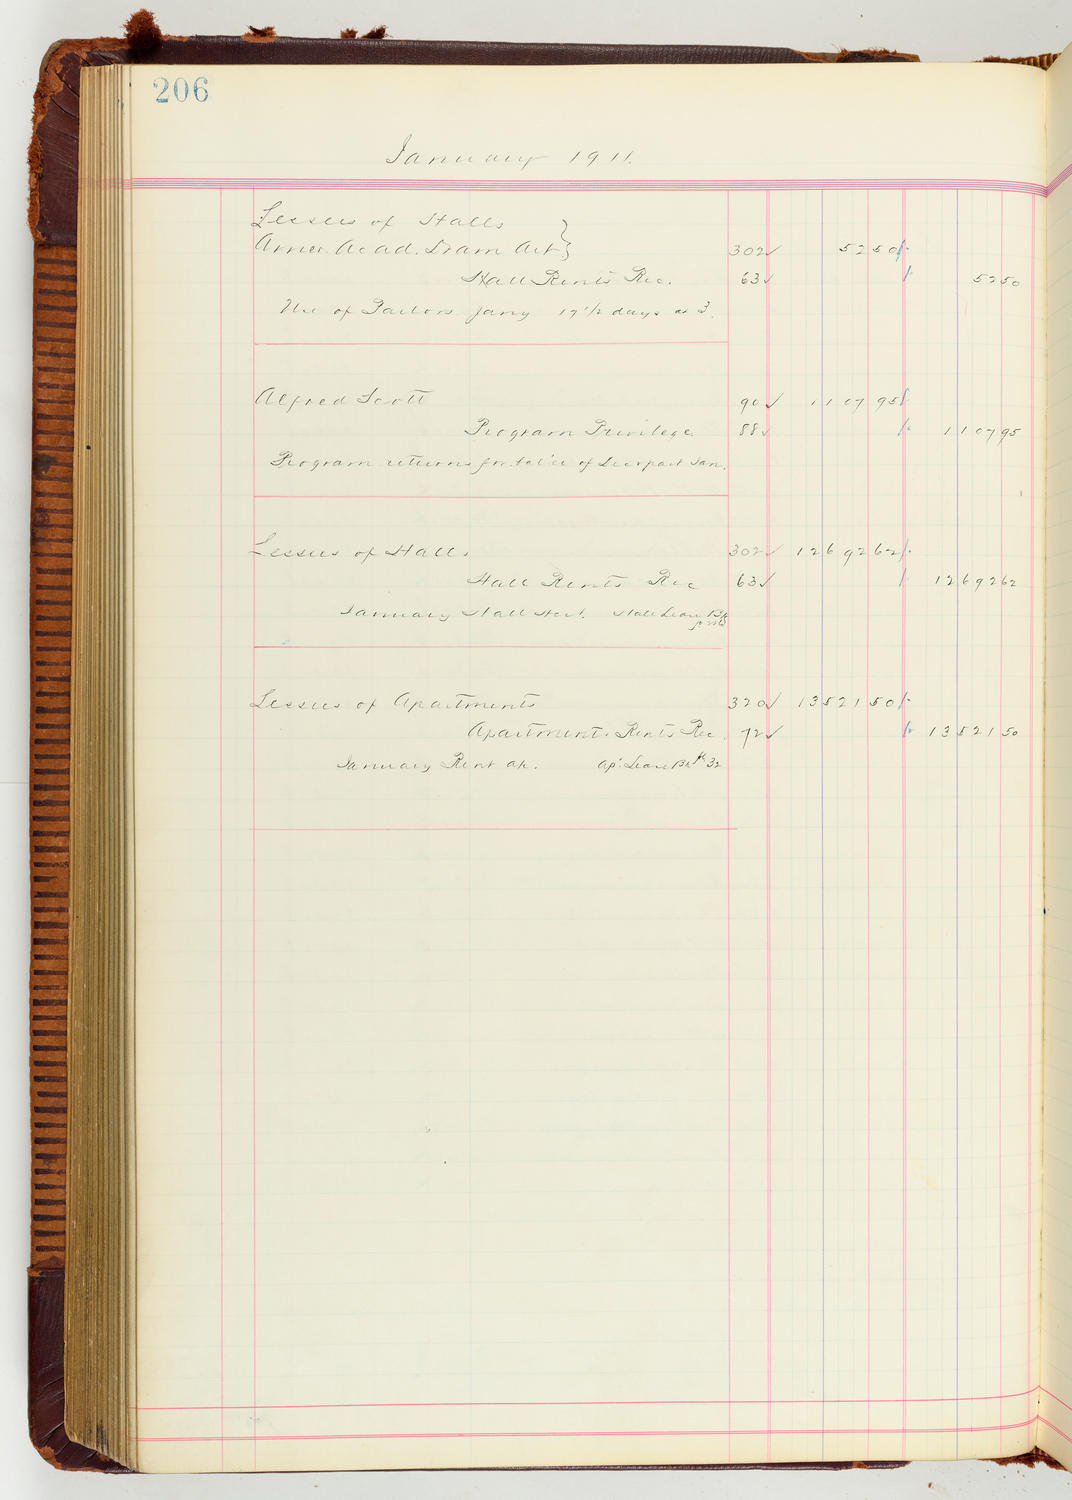 206
January 1911.
Lessees of Halls
Amer. Acad. Dram Art } 302 ✓ 52 50
Hall Rents Rec. 63 ✓ 52 50
Use of Parlors Jany 17 1/2 days at 3.
Alfred Scott 90 ✓ 1107 95
Program Privilege 88 ✓ 1107 95
Program returns for Jan.
Lessees of Halls 302 ✓ 12692 62
Hall Rents Rec 63 ✓ 12692 62
January Hall Hall Lease Bk
Lessees of Apartments 320 ✓ 13521 50
Apartment Rents Rec. 72 ✓ 13521 50
January Rent ap. Ap. Lease Bk 32